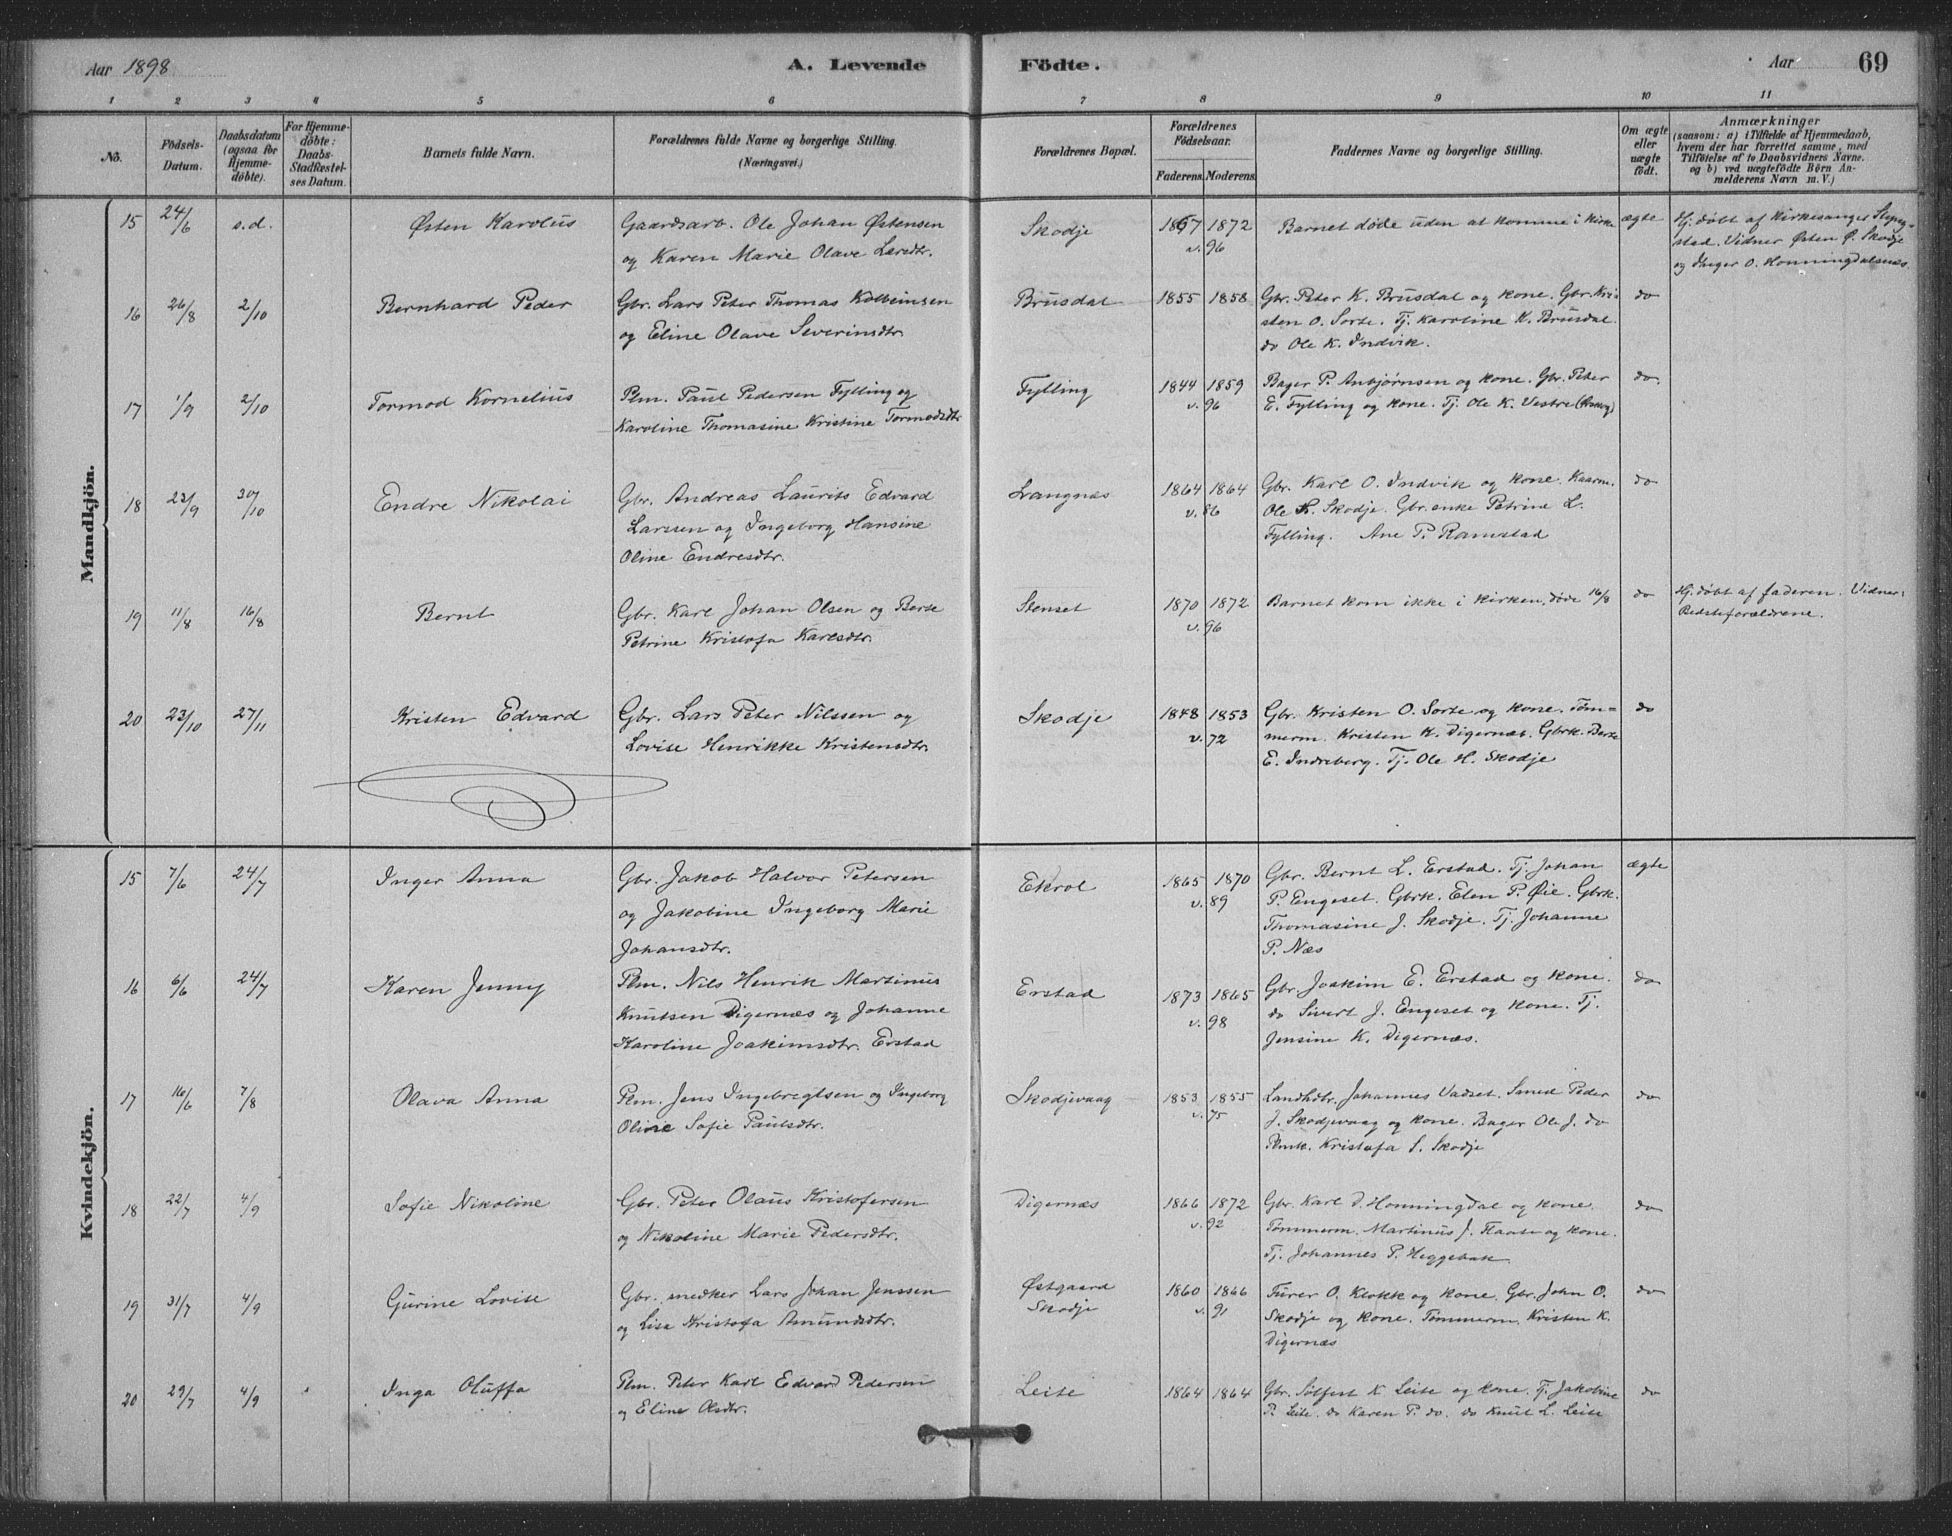 Aar 1898
A. Levende Födte.
Aar
69
1 2 3 4 5 6 7 8 9 10 11
No.
Födsels-Datum.
Daabsdatum (ogsaa for Hjemme-döbte).
For Hjemme-döbte: Daabs-Stadfæstel-ses Datum.
Barnets fulde Navn.
Forældrenes fulde Navne og borgerlige Stilling.
(Næringsvei.)
Forældrenes Bopæl.
Forældrenes Födselsaar.
Faderens. Moderens.
Faddernes Navne og borgerlige Stilling.
Om ægte eller uægte födt.
Anmærkninger
(saasom: a) i Tilfælde af Hjemmedaab,
hvem der har forrettet samme, med
Tilföielse af to Daabsvidners Navne.
og b) ved uægtefödte Börn An-
melderens Navn m. V.)
Mandkjön.
15 24/6 s.d. Østen Karolus Gaardsarb. Ole Johan Østensen Skodje 1867 1872 Barnet døde uden at komme i kirke ægte Hj. døbt af kirkesanger
og Karen Marie Olave Larsdtr. v. 96 stad. Vidner Østen Ø. Skodje
og Inger O. Honningdalsnæs
16 26/8 2/10 Bernhard Peder Gbr. Lars Peter Thomas Kolbeinsen Brusdal 1855 1858 Gbr. Peter K. Brusdal og kone. Gbr. Kri-
og Eline Olave Severinsdtr. sten O. Sorte. Tj. Karoline K. Brusdal. do
do Ole K. Indvik.
17 1/9 2/10 Tormod Kornelius Plm. Paul Pedersen Fylling og Fylling 1844 1859 Bager P. Anbjørnsen og kone. Gbr. Peter do.
Karoline Thomasine Kristine Tormodsdtr v. 96 E. Fylling og kone. Tj. Ole K. Vestre
18 23/9 30/10 Endre Nikolai Gbr. Andreas Laurits Edvard Langnæs 1864 1864 Gbr. Karl O. Indvik og kone. Kaarm. do
Larssen og Ingeborg Hansine v. 86 Ole K. Skodje. Gbr. enke Petrine L.
Oline Endresdtr. Fylling. Ane P. Ramstad
19 11/8 16/8 Bernt Gbr. Karl Johan Olsen og Berte Stenset 1870 1872 Barnet kom ikke i kirken, døde 16/8 do Hj. døbt af faderen. Vidner:
Petrine Kristofa Karlsdtr. v. 96 Bedsteforældrene.
20 23/10 27/11 Kristen Edvard Gbr. Lars Peter Nilssen og Skodje 1848 1853 Gbr. Kristen O. Sorte og kone. Tøm- do
Lovise Henrikke Kristensdtr. v. 72 merm. Kristen K. Digernæs. Gbrk. Berte
E. Indreberg. Tj. Ole H. Skodje
Kvindekjön.
15 7/6 24/7 Inger Anna Gbr. Jakob Halvor Petersen Ekrol 1865 1870 Gbr. Bernt L. Erstad. Tj. Johan ægte
og Jakobine Ingeborg Marie v. 89 P. Engeset. Gbrk. Elen P. Øie. Gbrk.
Johansdtr. Thomasine J. Skodje. Tj. Johanne
P. Næs
16 6/6 24/7 Karen Jenny Plm. Nils Henrik Martinus Erstad 1873 1865 Gbr. Joakim E. Erstad og kone. do
Knutsen Digernæs og Johanne v. 98 do Sivert J. Engeset og kone. Tj.
Karoline Joakimsdtr. Erstad Jensine K. Digernæs.
17 16/6 7/8 Olava Anna Plm. Jens Ingebregtsen og Ingeborg Skodjevaag 1853 1855 Landhdlr. Johannes Vadset. Smed Peder do
Oline Sofie Paulsdtr. v. 75 J. Skodjevaag og kone. Bager Ole J. do
Plmk. Kristofa S. Skodje
18 22/7 4/9 Sofie Nikoline Gbr. Peter Olaus Kristofersen Digernæs 1866 1872 Gbr. Karl D. Honningdal og kone. do
og Nikoline Marie Pedersdtr. v. 92 Tømmerm. Martinus J. Flaate og kone.
Tj. Johannes P. Heggebak
19 31/7 4/9 Gurine Lovise Gbr. snedker Lars Johan Jenssen Østgaard 1860 1866 Furer O. Klokk og kone. Gbr. John O. do
og Lisa Kristofa Amundsdtr. Skodje v. 91 Skodje og kone. Tømmerm. Kristen K.
Digernæs
20 29/7 4/9 Inga Oluffa Plm. Peter Karl Edvard Pedersen Leite 1864 1864 Gbr. Sølfest K. Leite og kone. Tj. Jakobine do
og Eline Olsdtr. P. Leite. do Karen P. do. do Knut L. Leite